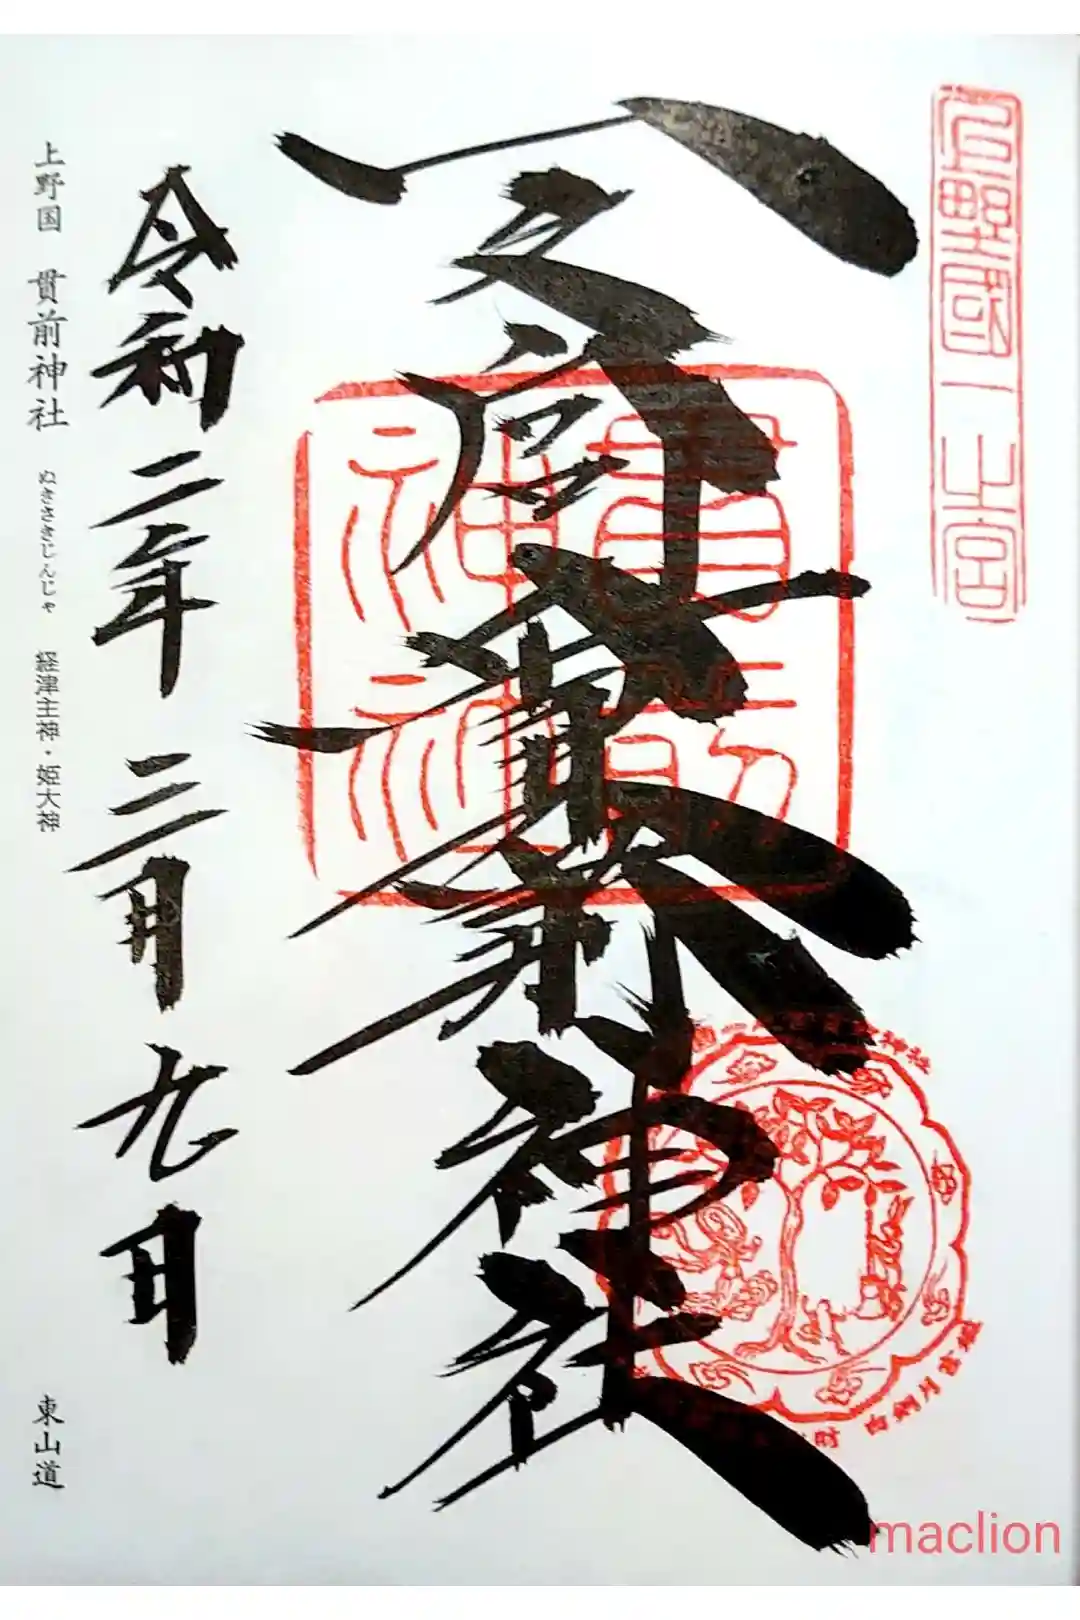 上野國一之宮
一之宮貫前神社
貫前神社
神社
白銅月宮鑑
令和二年三月九日
上野国 貫前神社 ぬきさきじんじゃ 経津主神・姫大神 東山道
maclion